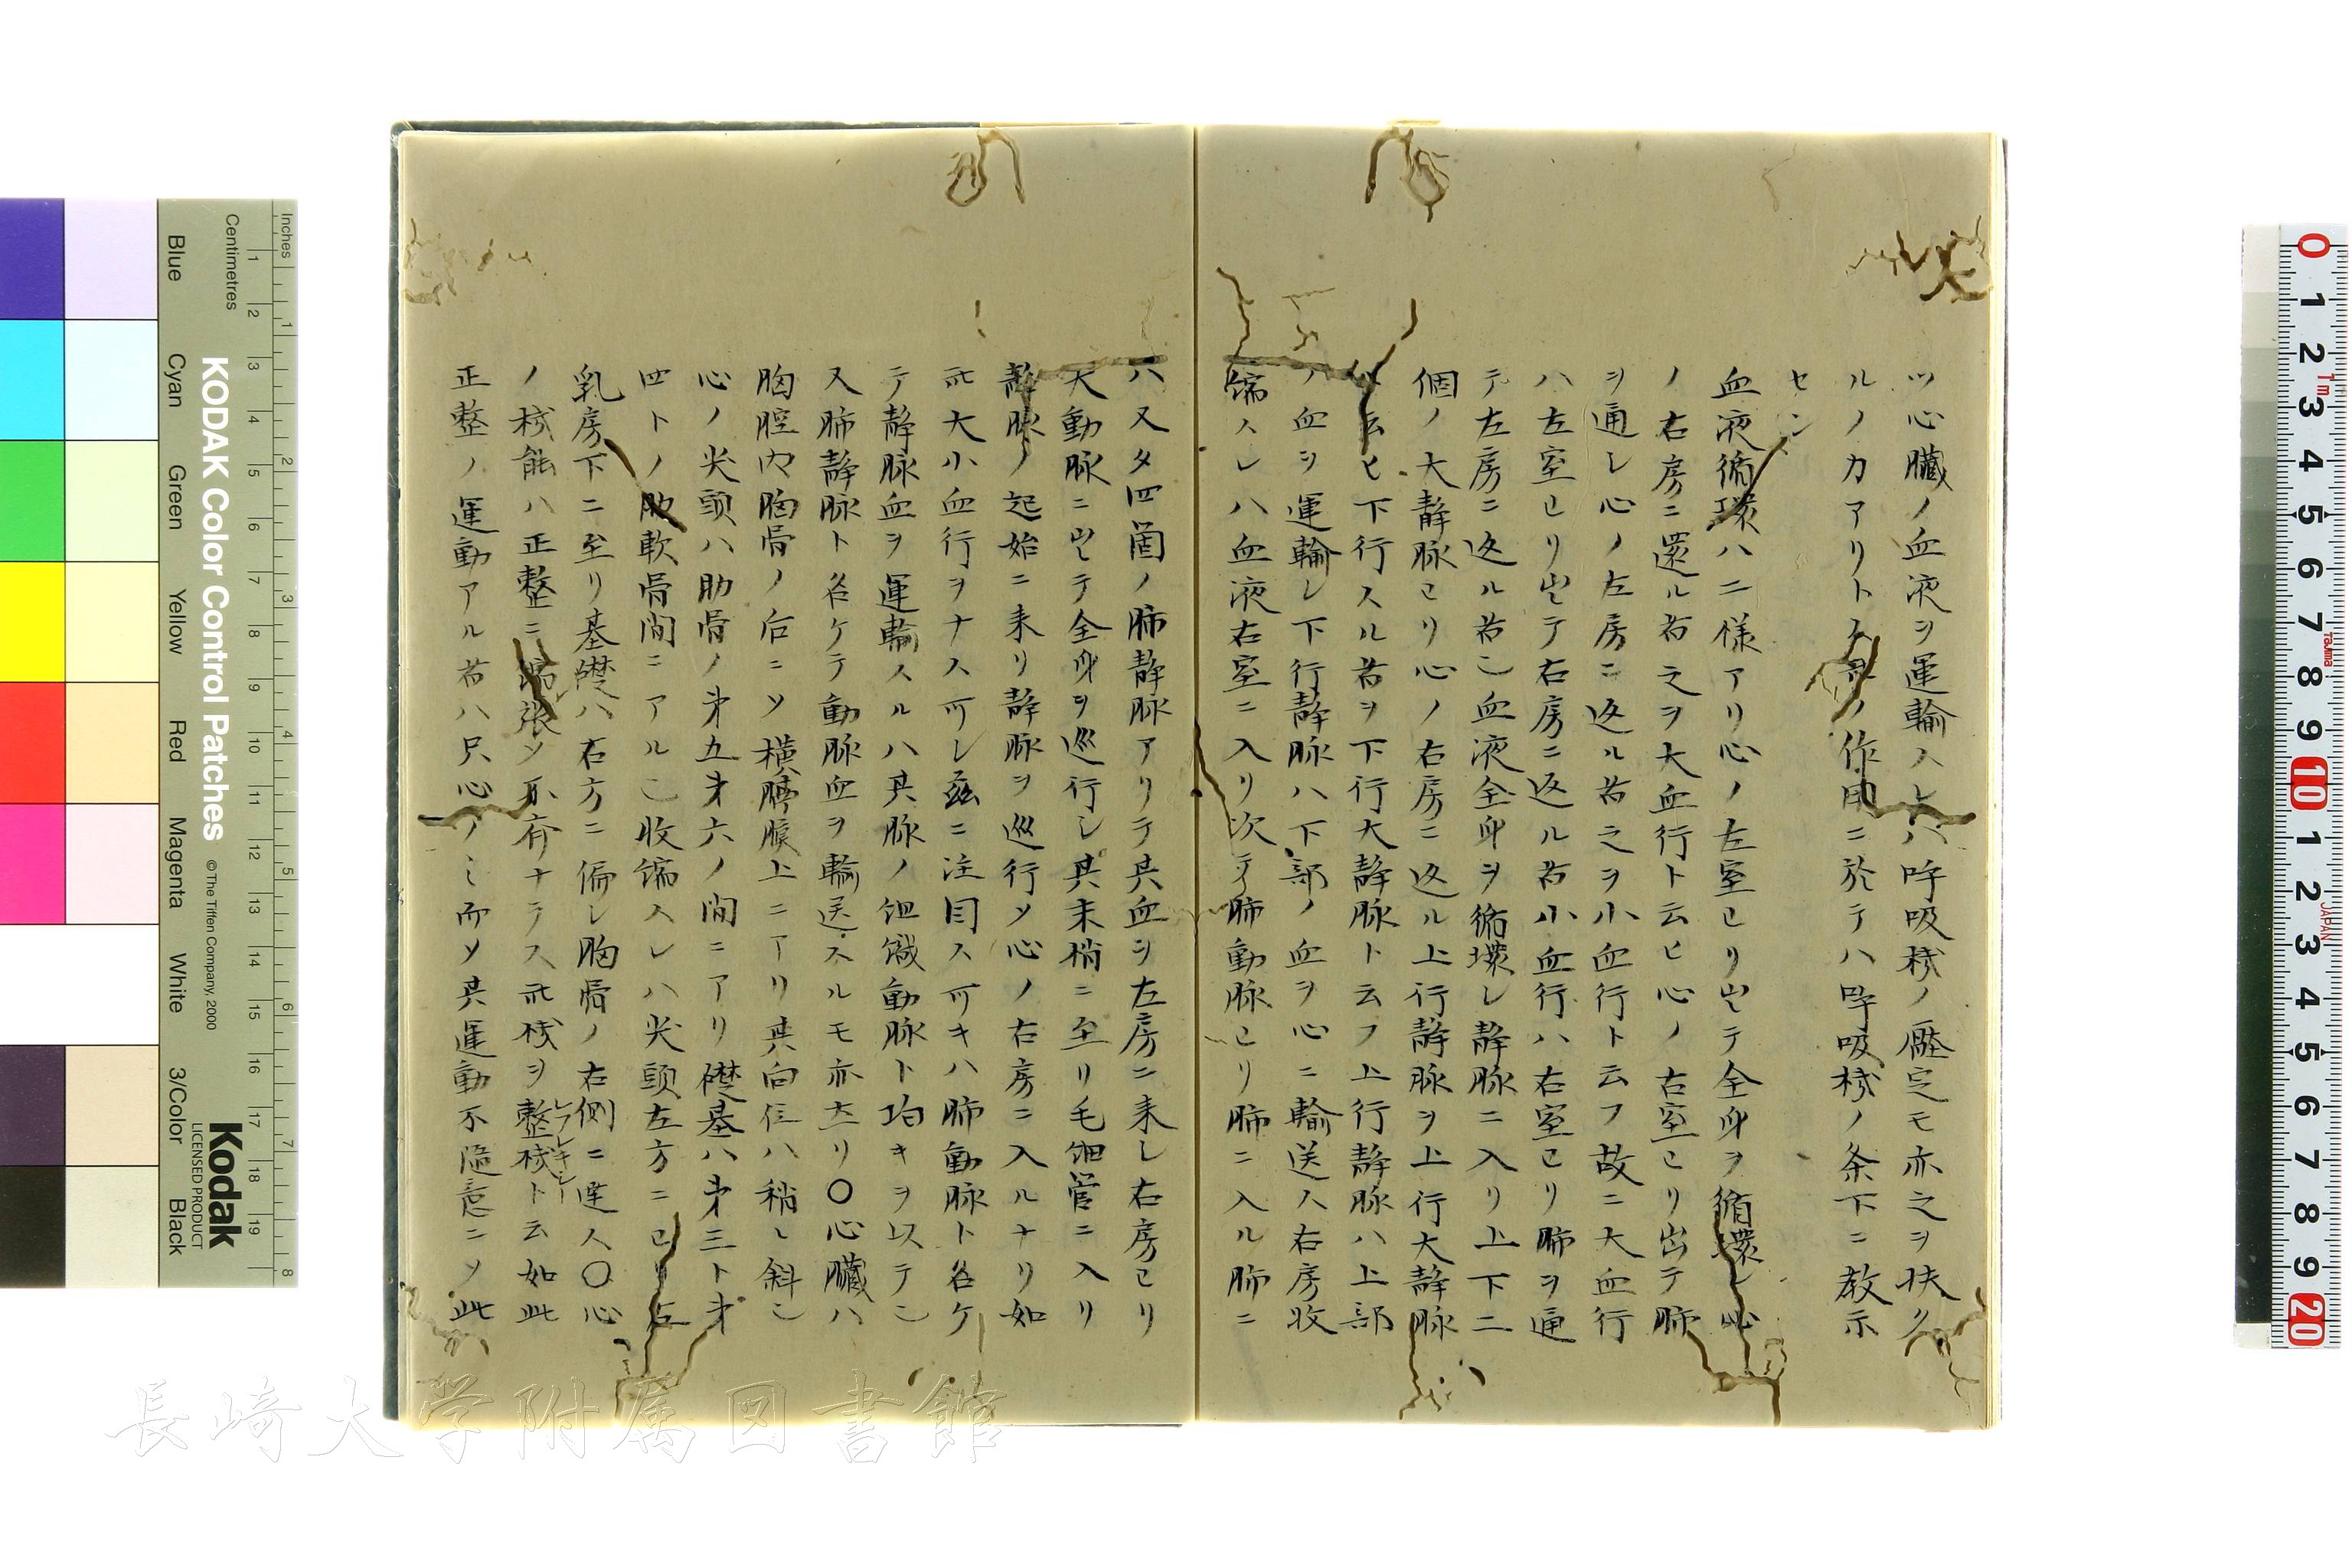 ツ心臓ノ血液ヲ運輸スレハ呼吸機ノ壓定モ亦之ヲ扶ク
ルノカアリト人身ノ作用ニ於テハ呼吸機ノ条下ニ教示
セン
血液循環ハ二様アリ心ノ左室ヨリ出テ全身ヲ循環シ心
ノ右房ニ還ル者之ヲ大血行ト云ヒ心ノ右室ヨリ出テ肺
ヲ通シ心ノ左房ニ返ル者之ヲ小血行ト云フ故ニ大血行
ハ左室ヨリ出テ右房ニ返ル者小血行ハ右室ヨリ肺ヲ通
テ左房ニ返ル者也血液全身ヲ循環シ静脉ニ入リ上下二
個ノ大静脉ヨリ心ノ右房ニ返ル上行静脉ヲ上行大静脉
ト云ヒ下行スル者ヲ下行大静脉ト云フ上行静脉ハ上部
ノ血ヲ運輸シ下行静脉ハ下部ノ血ヲ心ニ輸送ス右房收
縮スレハ血液右室ニ入リ次テ肺動脉ヨリ肺ニ入ル肺ニ
ハ又タ四箇ノ肺静脉アリテ其血ヲ左房ニ来シ右房ヨリ
大動脉ニ出テ全身ヲ巡行シ其末梢ニ至リ毛細管ニ入リ
静脉ノ起始ニ来リ静脉ヲ巡行メ心ノ右房ニ入ルナリ如
此大小血行ヲナス可シ茲ニ注目ス可キハ肺動脉ト名ケ
テ静脉血ヲ運輸スルハ其脉ノ組織動脉ト均キヲ以テ也
又肺静脉ト名ケテ動脉血ヲ輸送スルモ亦然リ〇心臓ハ
胸腔内胸骨ノ后ニメ横膈膜上ニアリ其向位ハ稍ミ斜也
心ノ尖頭ハ肋骨ノ第五第六ノ間ニアリ礎基ハ第三ト第
四トノ肋軟骨間ニアル也收縮スレハ尖頭左方ニヨリ左
乳房下ニ至リ基礎ハ右方ニ偏シ胸骨ノ右側ニ達ス〇心
ノ機能ハ正整ニ縮張メ不斉ナラス此機ヲ整機ト云如此
正整ノ運動アル者ハ只心ノミ而メ其運動不隨意ニメ此
KODAK Color Control Patches
©The Tiffen Company, 2000
Kodak
LICENSED PRODUCT
Inches
Centimetres
Blue
Cyan
Green
Yellow
Red
Magenta
White
3/Color
Black
長崎大学附属図書館